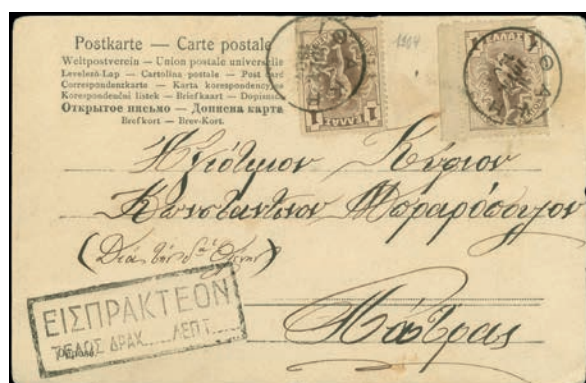 Postkarte — Carte postale
1904
Weltpostverein — Union postale universelle
Levelező-Lap — Cartolina postale — Post card
Correspondentkarte — Karta korespondencyjna
Korespondenční lístek — Briefkaart — Dopisnica
Открытое письмо — Дописна карта
Brefkort — Brev-Kort.
ΕΛΛΑΣ
1 1
ΕΛΛΑΣ
1
Ἀξιότιμον Κύριον
Κωνσταντῖνον
(Διὰ τὴν
Πάτρας
ΕΙΣΠΡΑΚΤΕΟΝ
ΤΕΛΟΣ ΔΡΑΧ. ΛΕΠΤ.